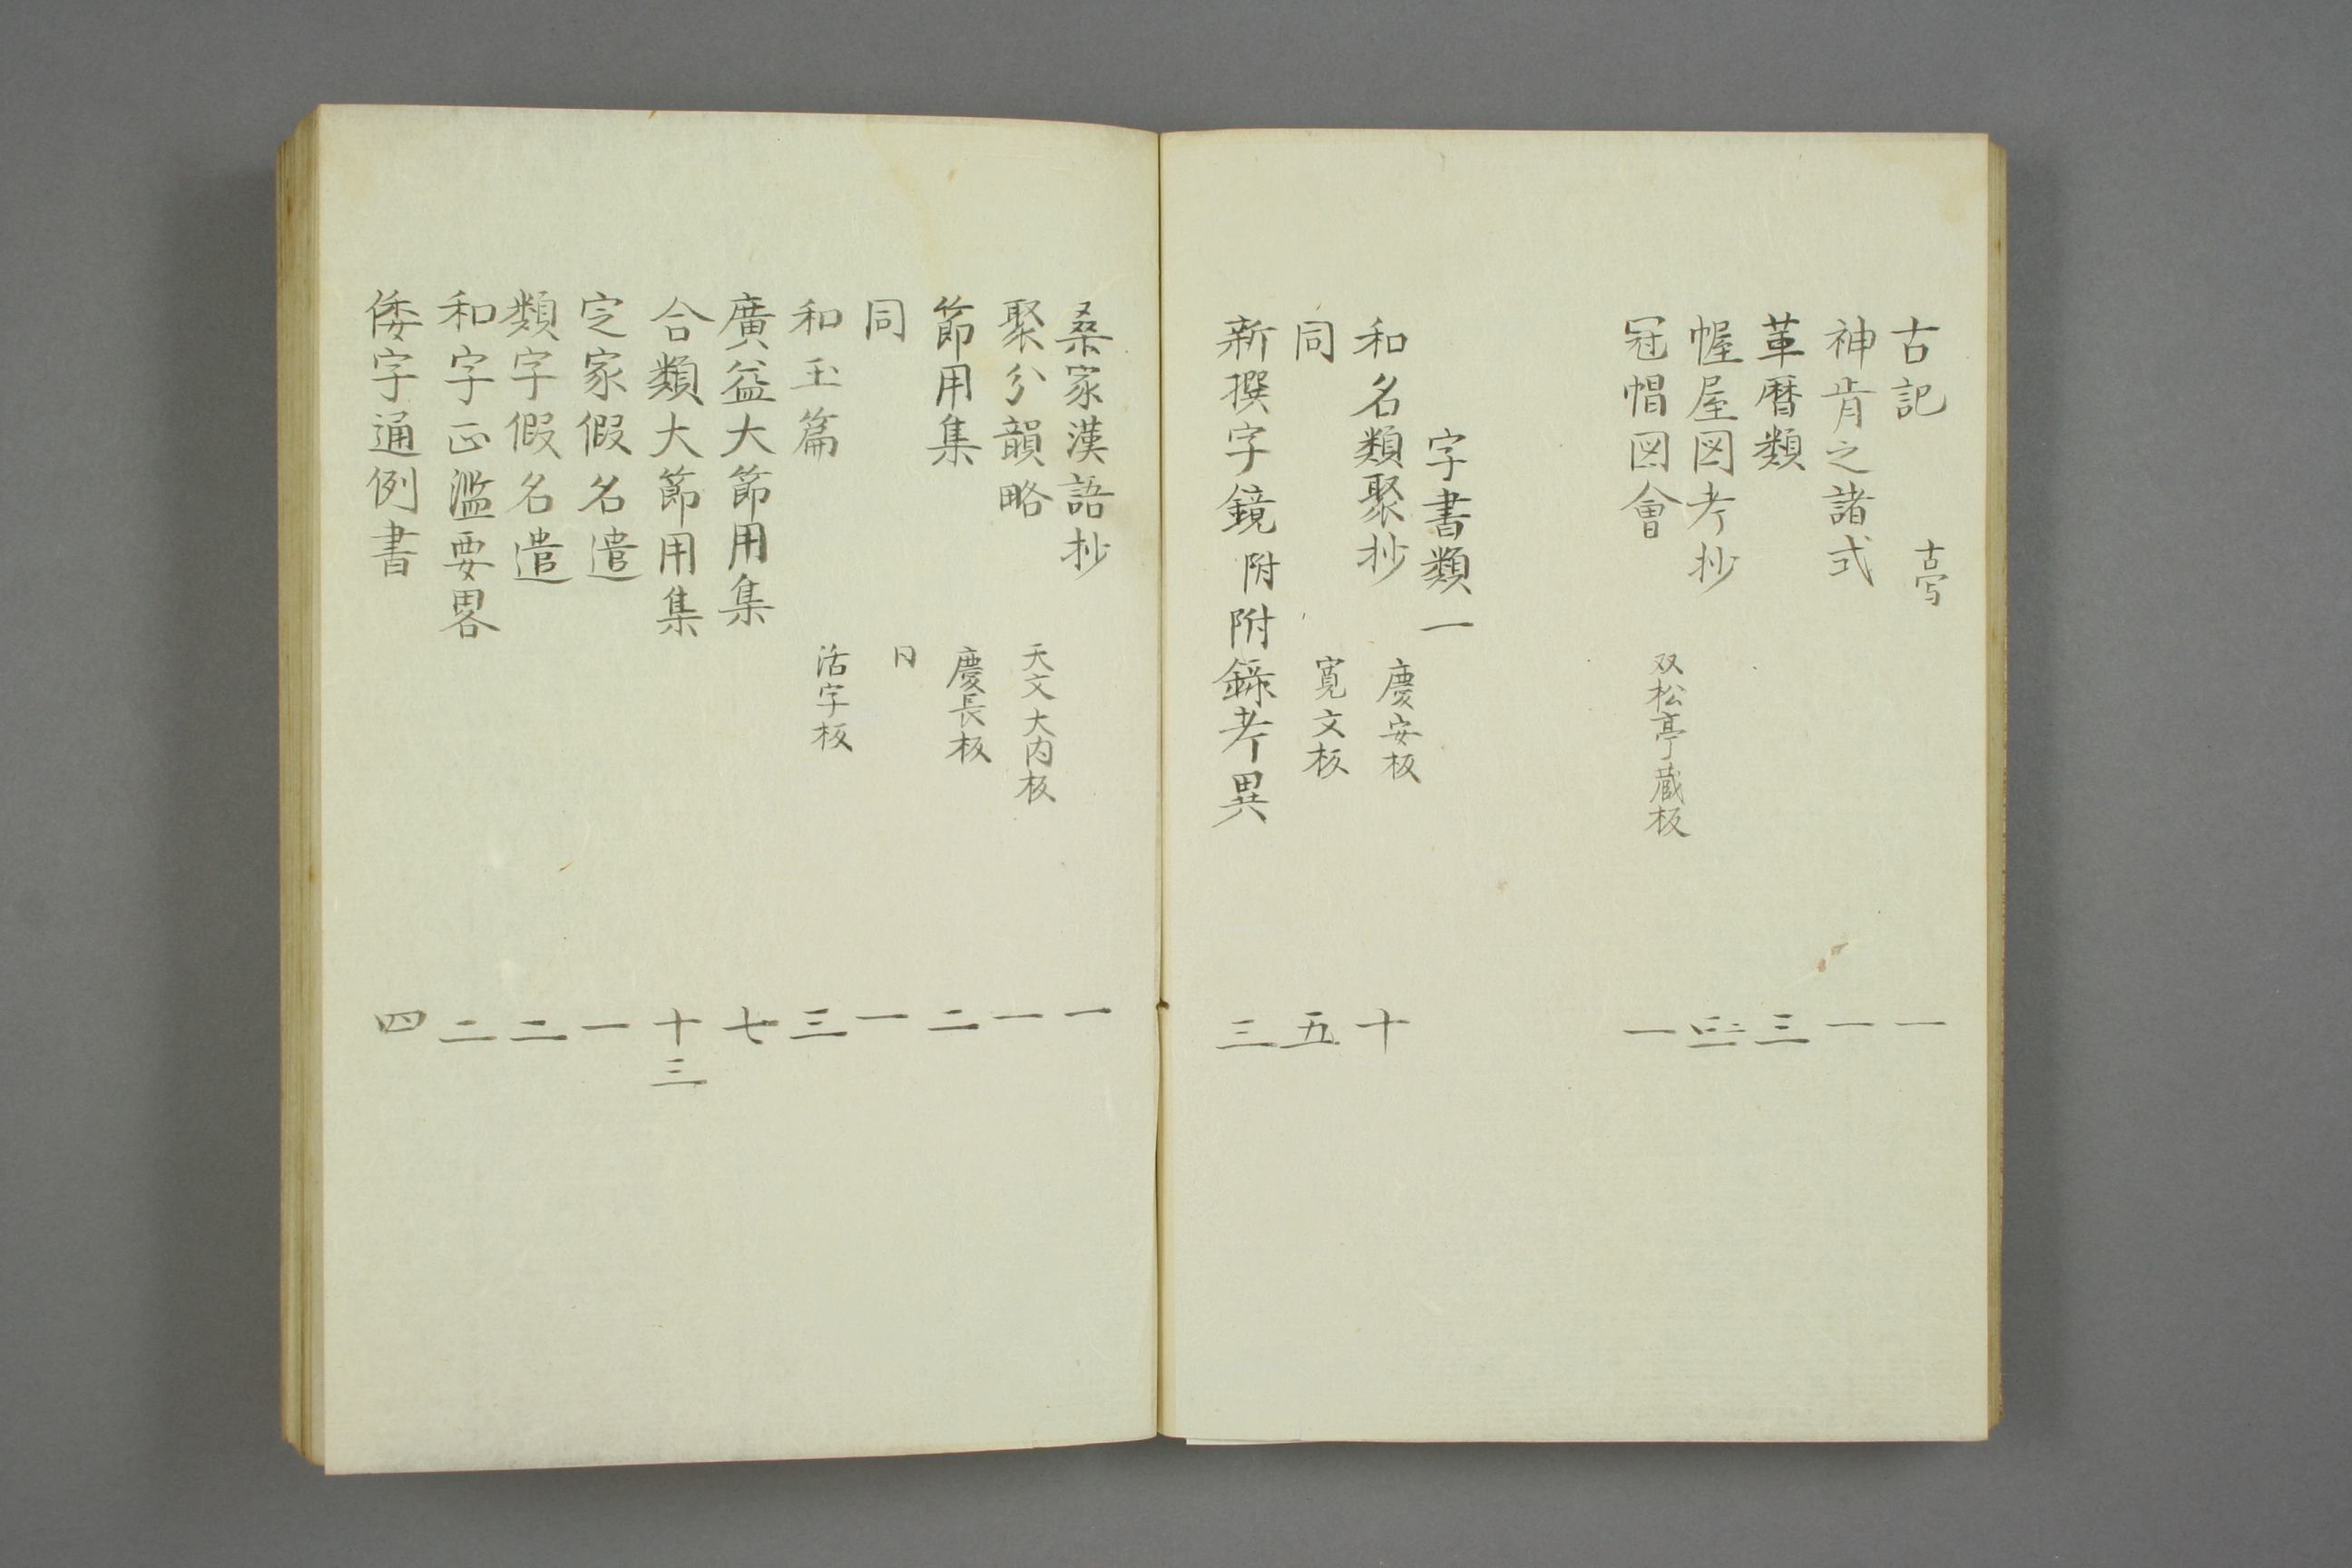 古記 古写 一
神肯之諸式 一
革暦類 三
幄屋図考抄
冠帽図會 双松亭蔵板 一
字書類一
和名類聚抄 慶安板 十
同 寛文板 五
新撰字鏡附附錄考異 三
桑家漢語抄 一
聚分韻略 天文大内板 一
節用集 慶長板 二
同 一
和玉篇 活字板 三
廣益大節用集 七
合類大節用集 十三
定家假名遣 一
類字假名遣 二
和字正濫要畧 二
倭字通例書 四